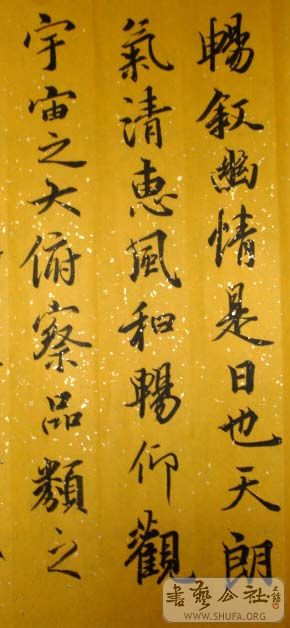 暢叙幽情是日也天朗
氣清惠風和暢仰觀
宇宙之大俯察品類之
書藝公社
WWW.SHUFA.ORG